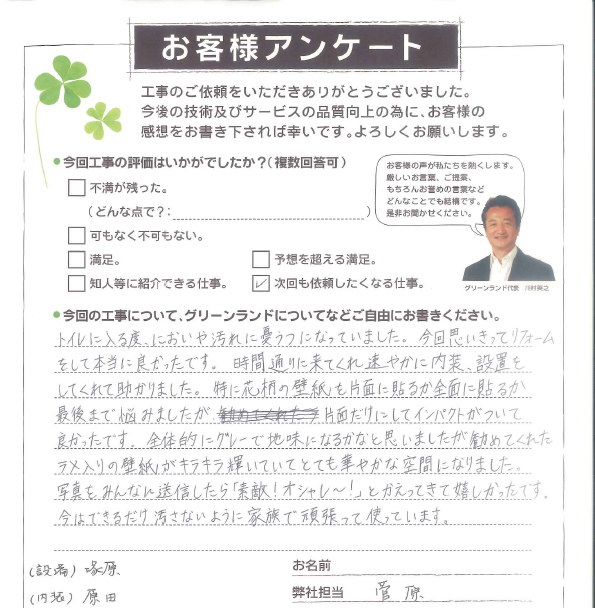 お客様アンケート
工事のご依頼をいただきありがとうございました。
今後の技術及びサービスの品質向上の為に、お客様の
感想をお書き下されば幸いです。よろしくお願いします。
●今回工事の評価はいかがでしたか?(複数回答可)
不満が残った。
(どんな点で?: )
可もなく不可もない。
満足。
予想を超える満足。
知人等に紹介できる仕事。
✓ 次回も依頼したくなる仕事。
お客様の声が私たちを熱くします。
厳しいお言葉、ご提案、
もちろんお誉めの言葉など
どんなことでも結構です。
是非お聞かせください。
グリーンランド代表 川村英之
●今回の工事について、グリーンランドについてなどご自由にお書きください。
トイレに入る度、においや汚れに憂うつになっていました。今回思いきってリフォーム
をして本当に良かったです。時間通りに来てくれ速やかに内装、設置を
してくれて助かりました。特に花柄の壁紙も片面に貼るか全面に貼るか
最後まで悩みましたが、片面だけにしてインパクトがついて
良かったです。全体的にグレーで地味になるかなと思いましたが勧めてくれた
ラメ入りの壁紙がキラキラ輝いていてとても華やかな空間になりました。
写真をみんなに送信したら「素敵!オシャレ〜!」とかえってきて嬉しかったです。
今はできるだけ汚さないように家族で頑張って使っています。
(設備) 塚原
(内装) 原田
お名前
弊社担当 菅原